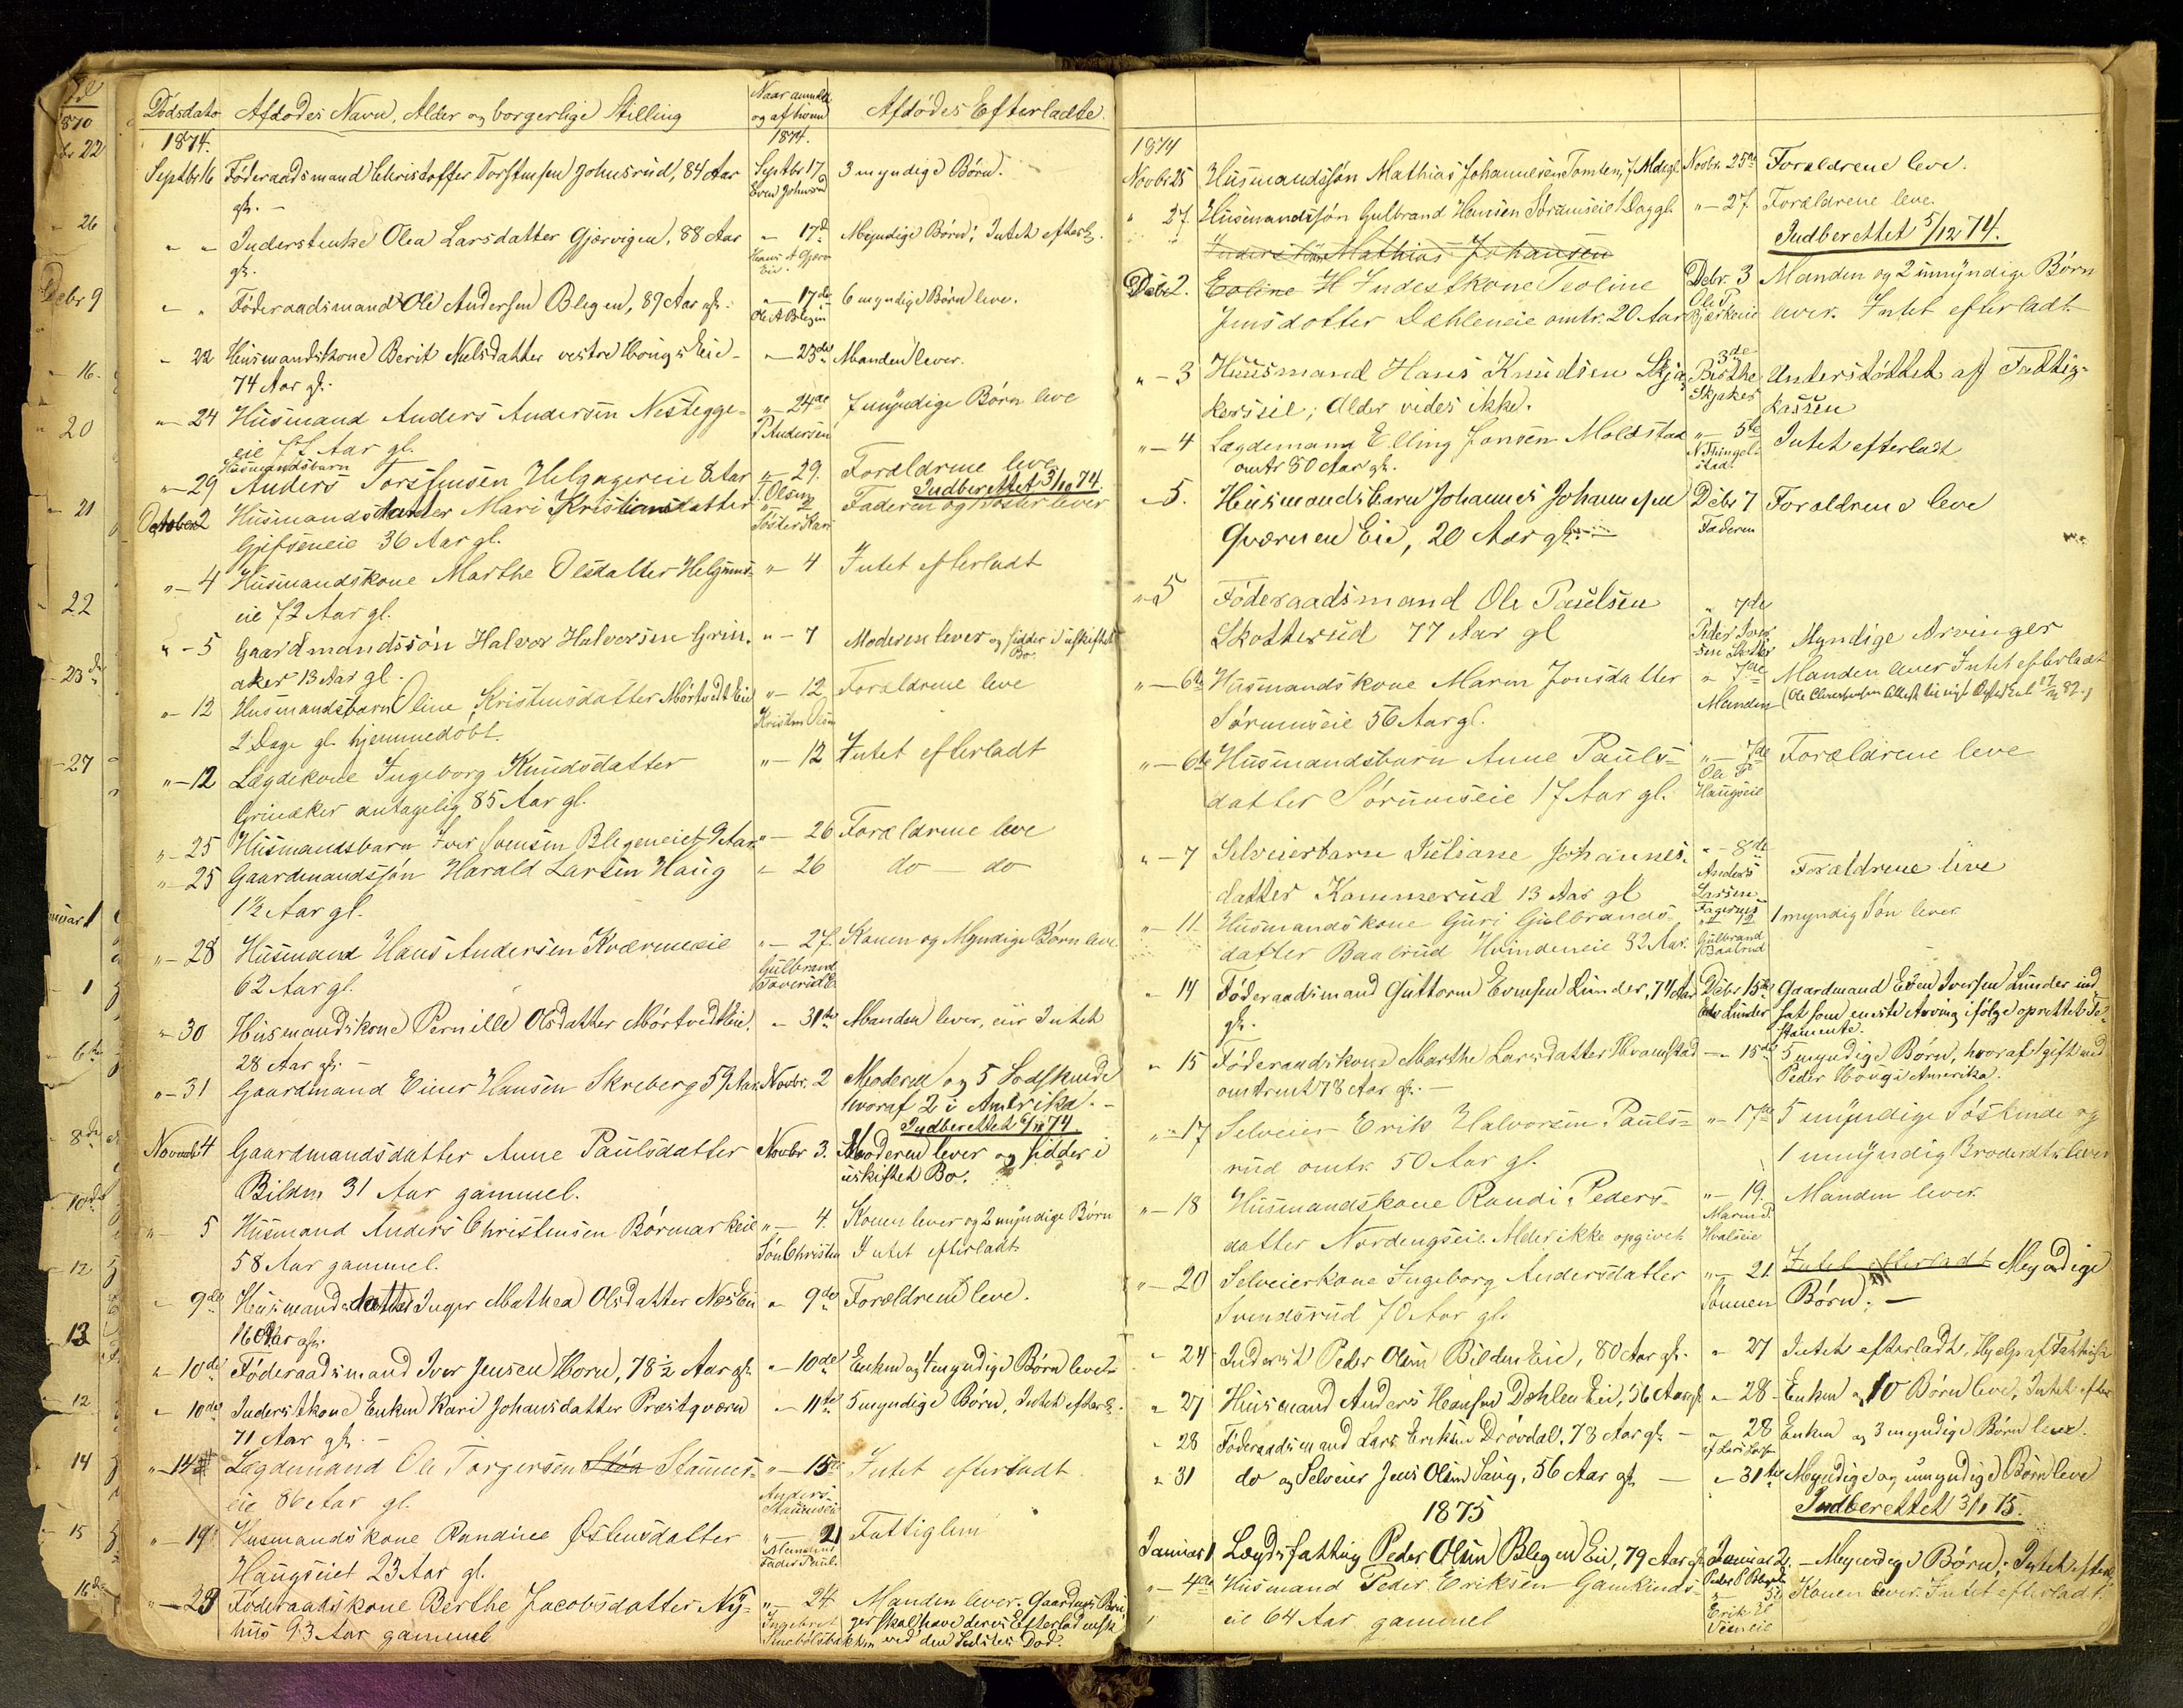 Dödsdato Afdödes Navn, Alder og borgerlige Stilling Naar anmeldt og af hvem Afdödes Efterladte
1874. 1874.
Septbr 16 Föderaadsmand Christoffer Torstensen Johnsrud, 84 Aar Septbr 17 3 myndige Börn.
gl. — Even Johnsrud
" " Inderstenke Olea Larsdatter Gjærvigen, 88 Aar " 17d Myndige Börn; Intet efterl.
gl. Hans A Gjærv Eie.
" " Föderaadsmand Ole Andersen Blegen, 89 Aar gl. " 17de 6 myndige Börn leve.
Ole A Blegen
" 22 Husmandskone Berit Nielsdatter vestre Hougs Eie — " 23de Manden lever.
74 Aar gl.
" — 24 Husmand Anders Andersen Nestegge- " 24de 7 myndige Börn leve
eie 77 Aar gl. P Andersen
Husmandsbarn
" — 29 Anders Torstensen Helgagereie 8 Aar " 29. Forældrene leve
Indberettet 3/10 74.
October 2 Husmandsdatter Mari Kristiansdatter T. Olsen " 2 Faderen og Söster lever
Gjefseneie 36 Aar gl. Söster Kari
" — 4 Husmandskone Marthe Olsdatter Helgums- " — 4 Intet efterladt
eie 72 Aar gl.
" — 5 Gaardmandssön Halvor Halvorsen Grin- " — 7 Moderen lever og sidder i uskiftet
aker 13 Aar gl. Bo.
" — 12 Husmandsbarn Oline Kristensdatter Mörtvedt Eie " — 12 Forældrene leve
2 Dage gl. hjemmedöbt. Kristen Olsen
" — 12 Lægdekone Ingeborg Knudsdatter " — 12 Intet efterladt
Grinaker antagelig 85 Aar gl.
" — 25 Husmandsbarn Iver Svensen Blegeneiet 9 Aar " — 26 Forældrene leve
" — 25 Gaardmandssön Harald Larsen Haug " 26 do — do
1½ Aar gl.
" — 28 Husmand Hans Andersen Kværneeie " — 27. Konen og Myndige Börn leve.
62 Aar gl. Gulbrand
" — 30 Husmandskone Pernille Olsdatter Mörtvedt Eie. " 31te Manden lever, eier Intet
28 Aar gl. —
" — 31 Gaardmand Einer Hansen Skreberg 59 Aar Novbr. 2 Moderen og 5 Sodskende
hvoraf 2 i Amerika. —
Indberettet 6/11 74
Novemb. 4 Gaardmandsdatter Anne Paulsdatter Novbr 3. Moderen lever og sidder i
Bilden 31 Aar gammel. uskiftet Bo.
" 5 Husmand Anders Christensen Börmarkeie " — 4. Konen lever og 2 myndige Börn
58 Aar gammel. Sön Christen Intet efterladt
" 9de Husmandsdatter Inger Mathea Olsdatter Næs Eie " 9de Forældrene leve.
16 Aar gl.
" 10de Föderaadsmand Iver Jensen Horn, 78½ Aar gl. " 10de Enken og 4 myndige Börn leve
" 10de Inderstkone Enken Kari Johansdatter Præstqværn " 11te 5 myndige Börn, Intet efterl.
71 Aar gl. —
" — 14 Lægdemand Ole Torgersen Stöa Staxxx- " 15de Intet efterladt
eie 86 Aar gl. Anders
" — 19 Husmandskone Randine Östensdatter " — 21 Fattiglem
Haugseiet 23 Aar gl. Fader Paul.
" — 23 Föderaadskone Berthe Jacobsdatter Ny- " — 24 Manden lever. Gaardens
hus 93 Aar gammel Ingebret skal have deres Efterladensk
ved den Sidstes Död.
1874
Novbr 25 Husmandssön Mathias Johannesen Tomten, 7 Mdr gl. Novbr. 25de Forældrene leve.
" 27. Husmandssön Gulbrand Hansen Sörumseie 1 Dag gl. " — 27 Forældrene leve.
Indberettet 5/12 74.
Inderstkone Mathias Johansen
Debr 2. Eoline H Inderstkone Teoline Debr. 3 Manden og 2 umyndige Börn
Jensdatter Dæhleneie omtr. 20 Aar Ole P. Bjerkeeie lever. Intet efterladt
" — 3 Husmand Hans Knudsen Skja- 3de Berthe Skjaker Understöttet af Fattig-
kerseie; Alder vides ikke. kassen
" — 4 Lægdemand Elling Jonsen Moldstad " — 5te Intet efterladt
omtr 80 Aar gl. N Thingel- stad.
" 5. Husmandsbarn Johannes Johannesen Debr 7 Forældrene leve
Qværnen Eie, 20 Aar gl. Faderen
" 5 Föderaadsmand Ole Paulsen " 7de
Skotterud 77 Aar gl Peder Iver- sen Myndige Arvinger
" — 6te Husmandskone Maren Jonsdatter " 7de Manden lever Intet efterladt
Sörumseie 56 Aar gl. Manden
" — 6te Husmandsbarn Anne Pauls- " 7de Forældrene leve
datter Sörumseie 17 Aar gl. Ole P Haugseie
" — 7 Selveierbarn Juliane Johannes- " — 8de
datter Kammerud 13 Aar gl Anders Larsen Fagernes Forældrene leve
" — 11 Husmandskone Guri Gulbrands- " 12 1 myndig Sön lever
datter Baalrud Hvindeneie 82 Aar. Gulbrand Baalrud
" 14 Föderaadsmand Guttorm Evensen Lunder, 74 Aar Debr 15de Gaardmand Even Iversen Lunder ind-
gl. Lunder sat som eneste Arving ifölge oprettet Te-
stamente.
" 15 Föderaadskone Marthe Larsdatter Hvamstad — " 15de 5 myndige Börn, hvoraf 1 gift med
omtrent 78 Aar gl. — Peder Houg i Amerika.
" — 17 Selveier Erik Halvorsen Pauls- " — 17de 5 myndige Söskende og
rud omtr. 50 Aar gl. 1 umyndig Broderdtr. lever
" — 18 Husmandskone Randi Peders- " — 19. Manden lever.
datter Nordengseie Alder ikke opgivet Maren P. Hvalseie
" — 20 Selveierkone Ingeborg Andersdatter " — 21 Intet efterladt Myndige
Svendsrud 70 Aar gl. Sönnen Börn; —
" 24 Inderst Peder Olsen Bilden Eie, 80 Aar gl. " 27 Intet efterladt, Hjelp af Fattigk
" 27 Husmand Anders Hansen Dæhlen Eie, 56 Aar gl. " 28 Enken og 10 Börn leve, Intet efter
" 28 Föderaadsmand Lars Eriksen Drövdal, 78 Aar gl. — " 28 Enken og 3 myndige Börn leve.
" 31 do og Selveier Jens Olsen Saug, 56 Aar gl. — " 31te Myndige og umyndige Börn leve
Indberettet 3/1 75.
1875
Januar 1 Lægdsfattig Peder Olsen Blegen Eie, 79 Aar gl. Januar 2. — Myndige Börn; Intet efterl.
" — 4de Husmand Peder Eriksen Gamkinds- Konen lever. Intet efterladt.
eie 64 Aar gammel Erik